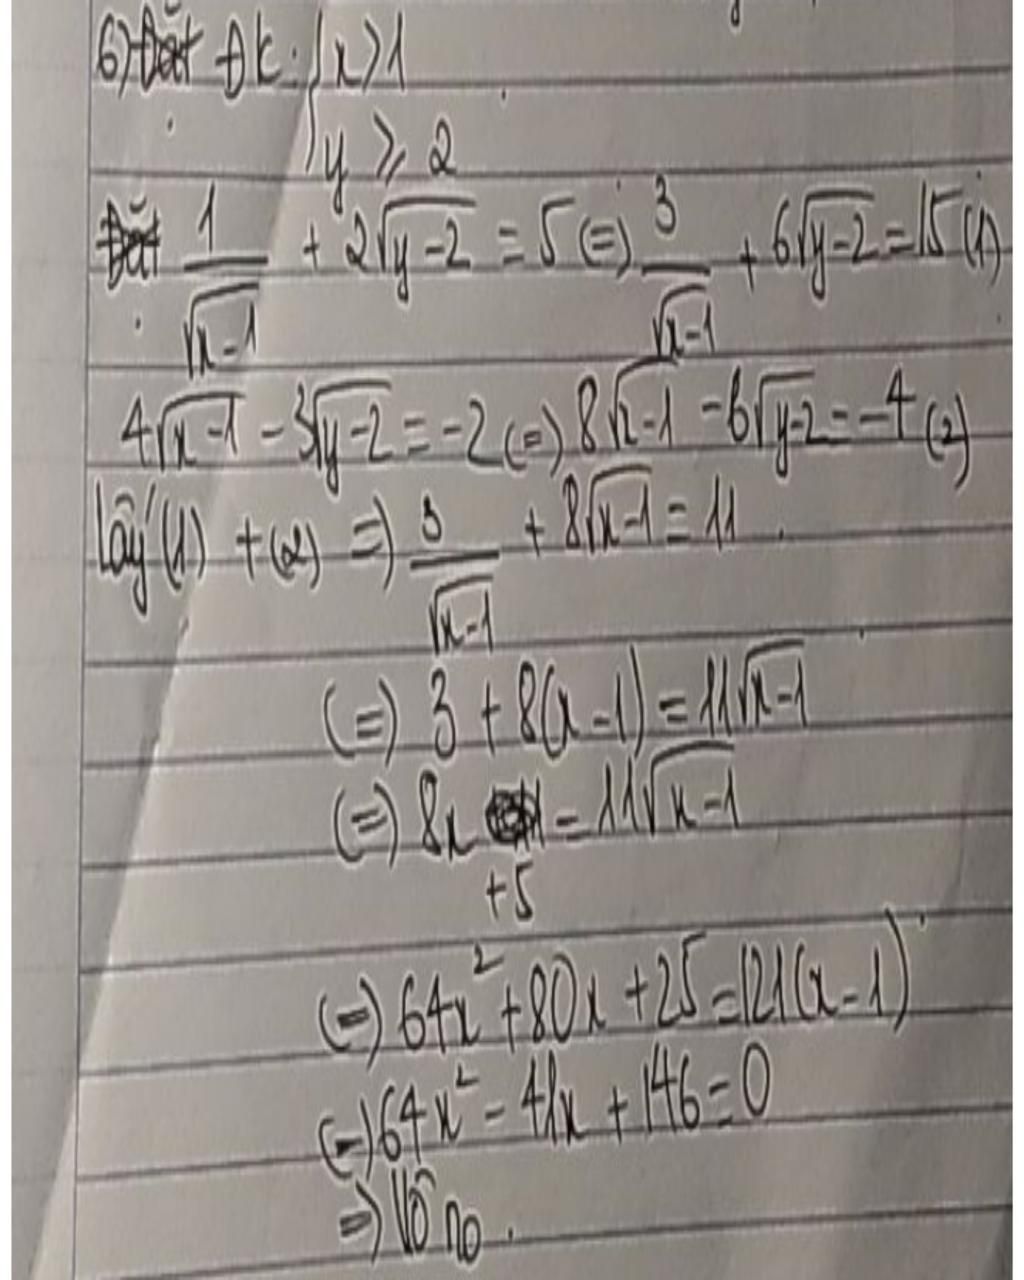 6) Đặt Đk: { x > 1
y ≥ 2
Đặt 1/√(x-1) + 2√(y-2) = 5 (=) 3/√(x-1) + 6√(y-2) = 15 (1)
4√(x-1) - 3√(y-2) = -2 (=) 8√(x-1) - 6√(y-2) = -4 (2)
lấy (1) + (2) => 3/√(x-1) + 8√(x-1) = 11.
(=) 3 + 8(x-1) = 11√(x-1)
(=) 8x = 11√(x-1)
+5
(=) 64x² + 80x + 25 = 121(x-1)
(=) 64x² - 41x + 146 = 0
=> Vô no.